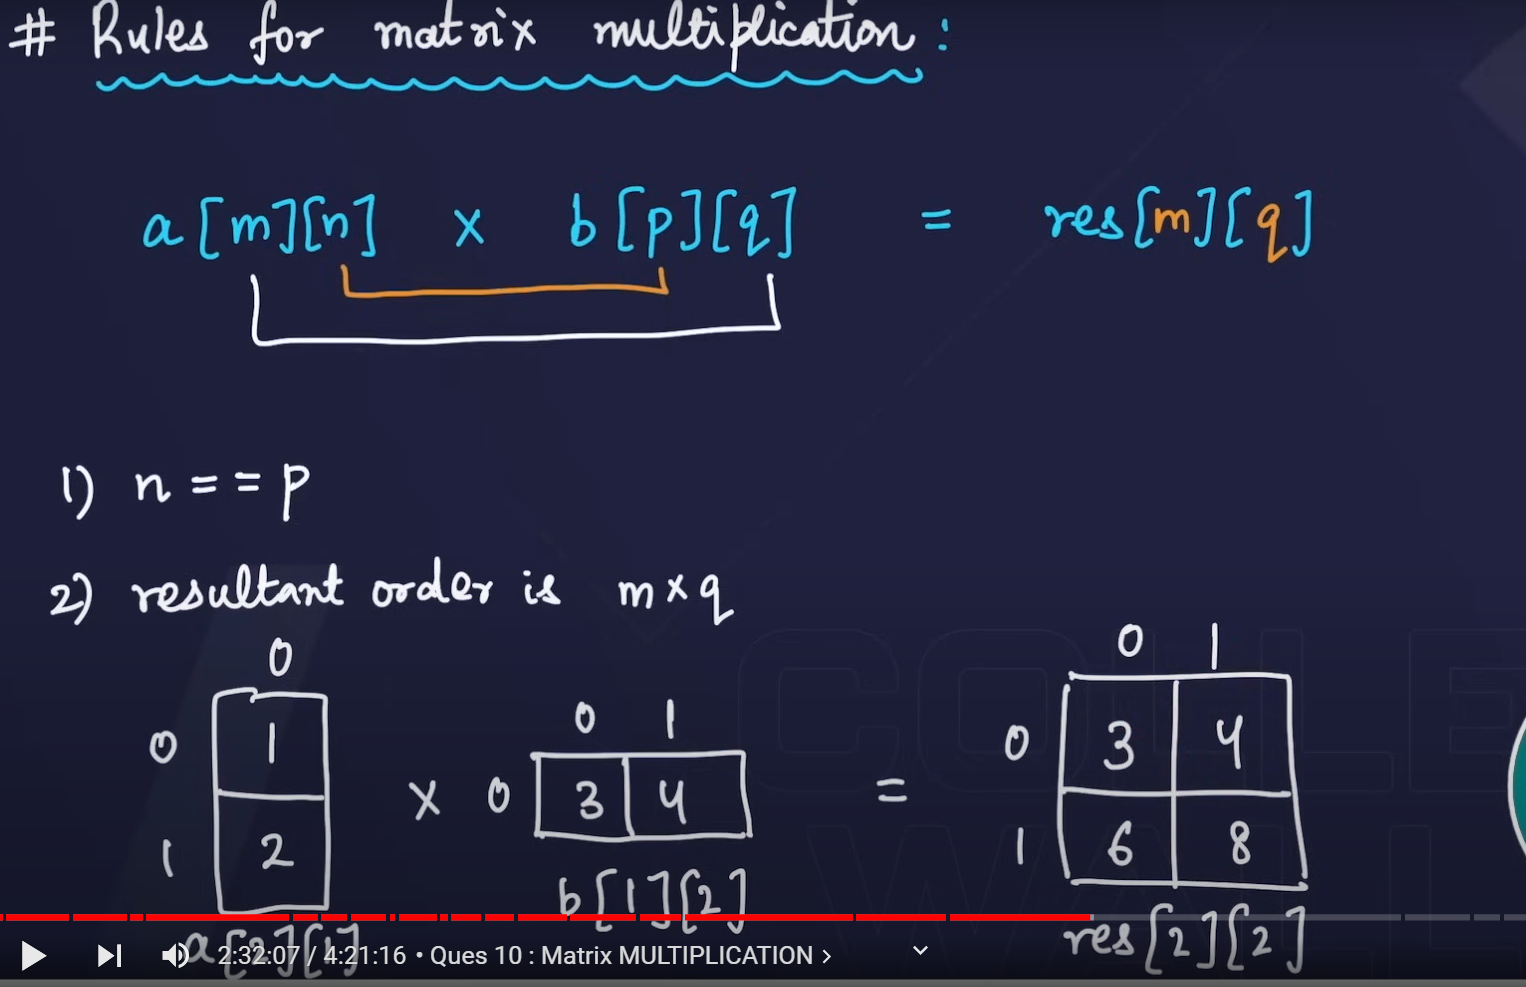 # Rules for matrix multiplication :
a[m][n] x b[p][q] = res[m][q]
1) n == p
2) resultant order is m x q
0
0 1
1 2
x
0 1
0 3 4
=
0 1
0 3 4
1 6 8
a[2][1]
b[1][2]
res[2][2]
2:32:07 / 4:21:16 • Ques 10 : Matrix MULTIPLICATION >